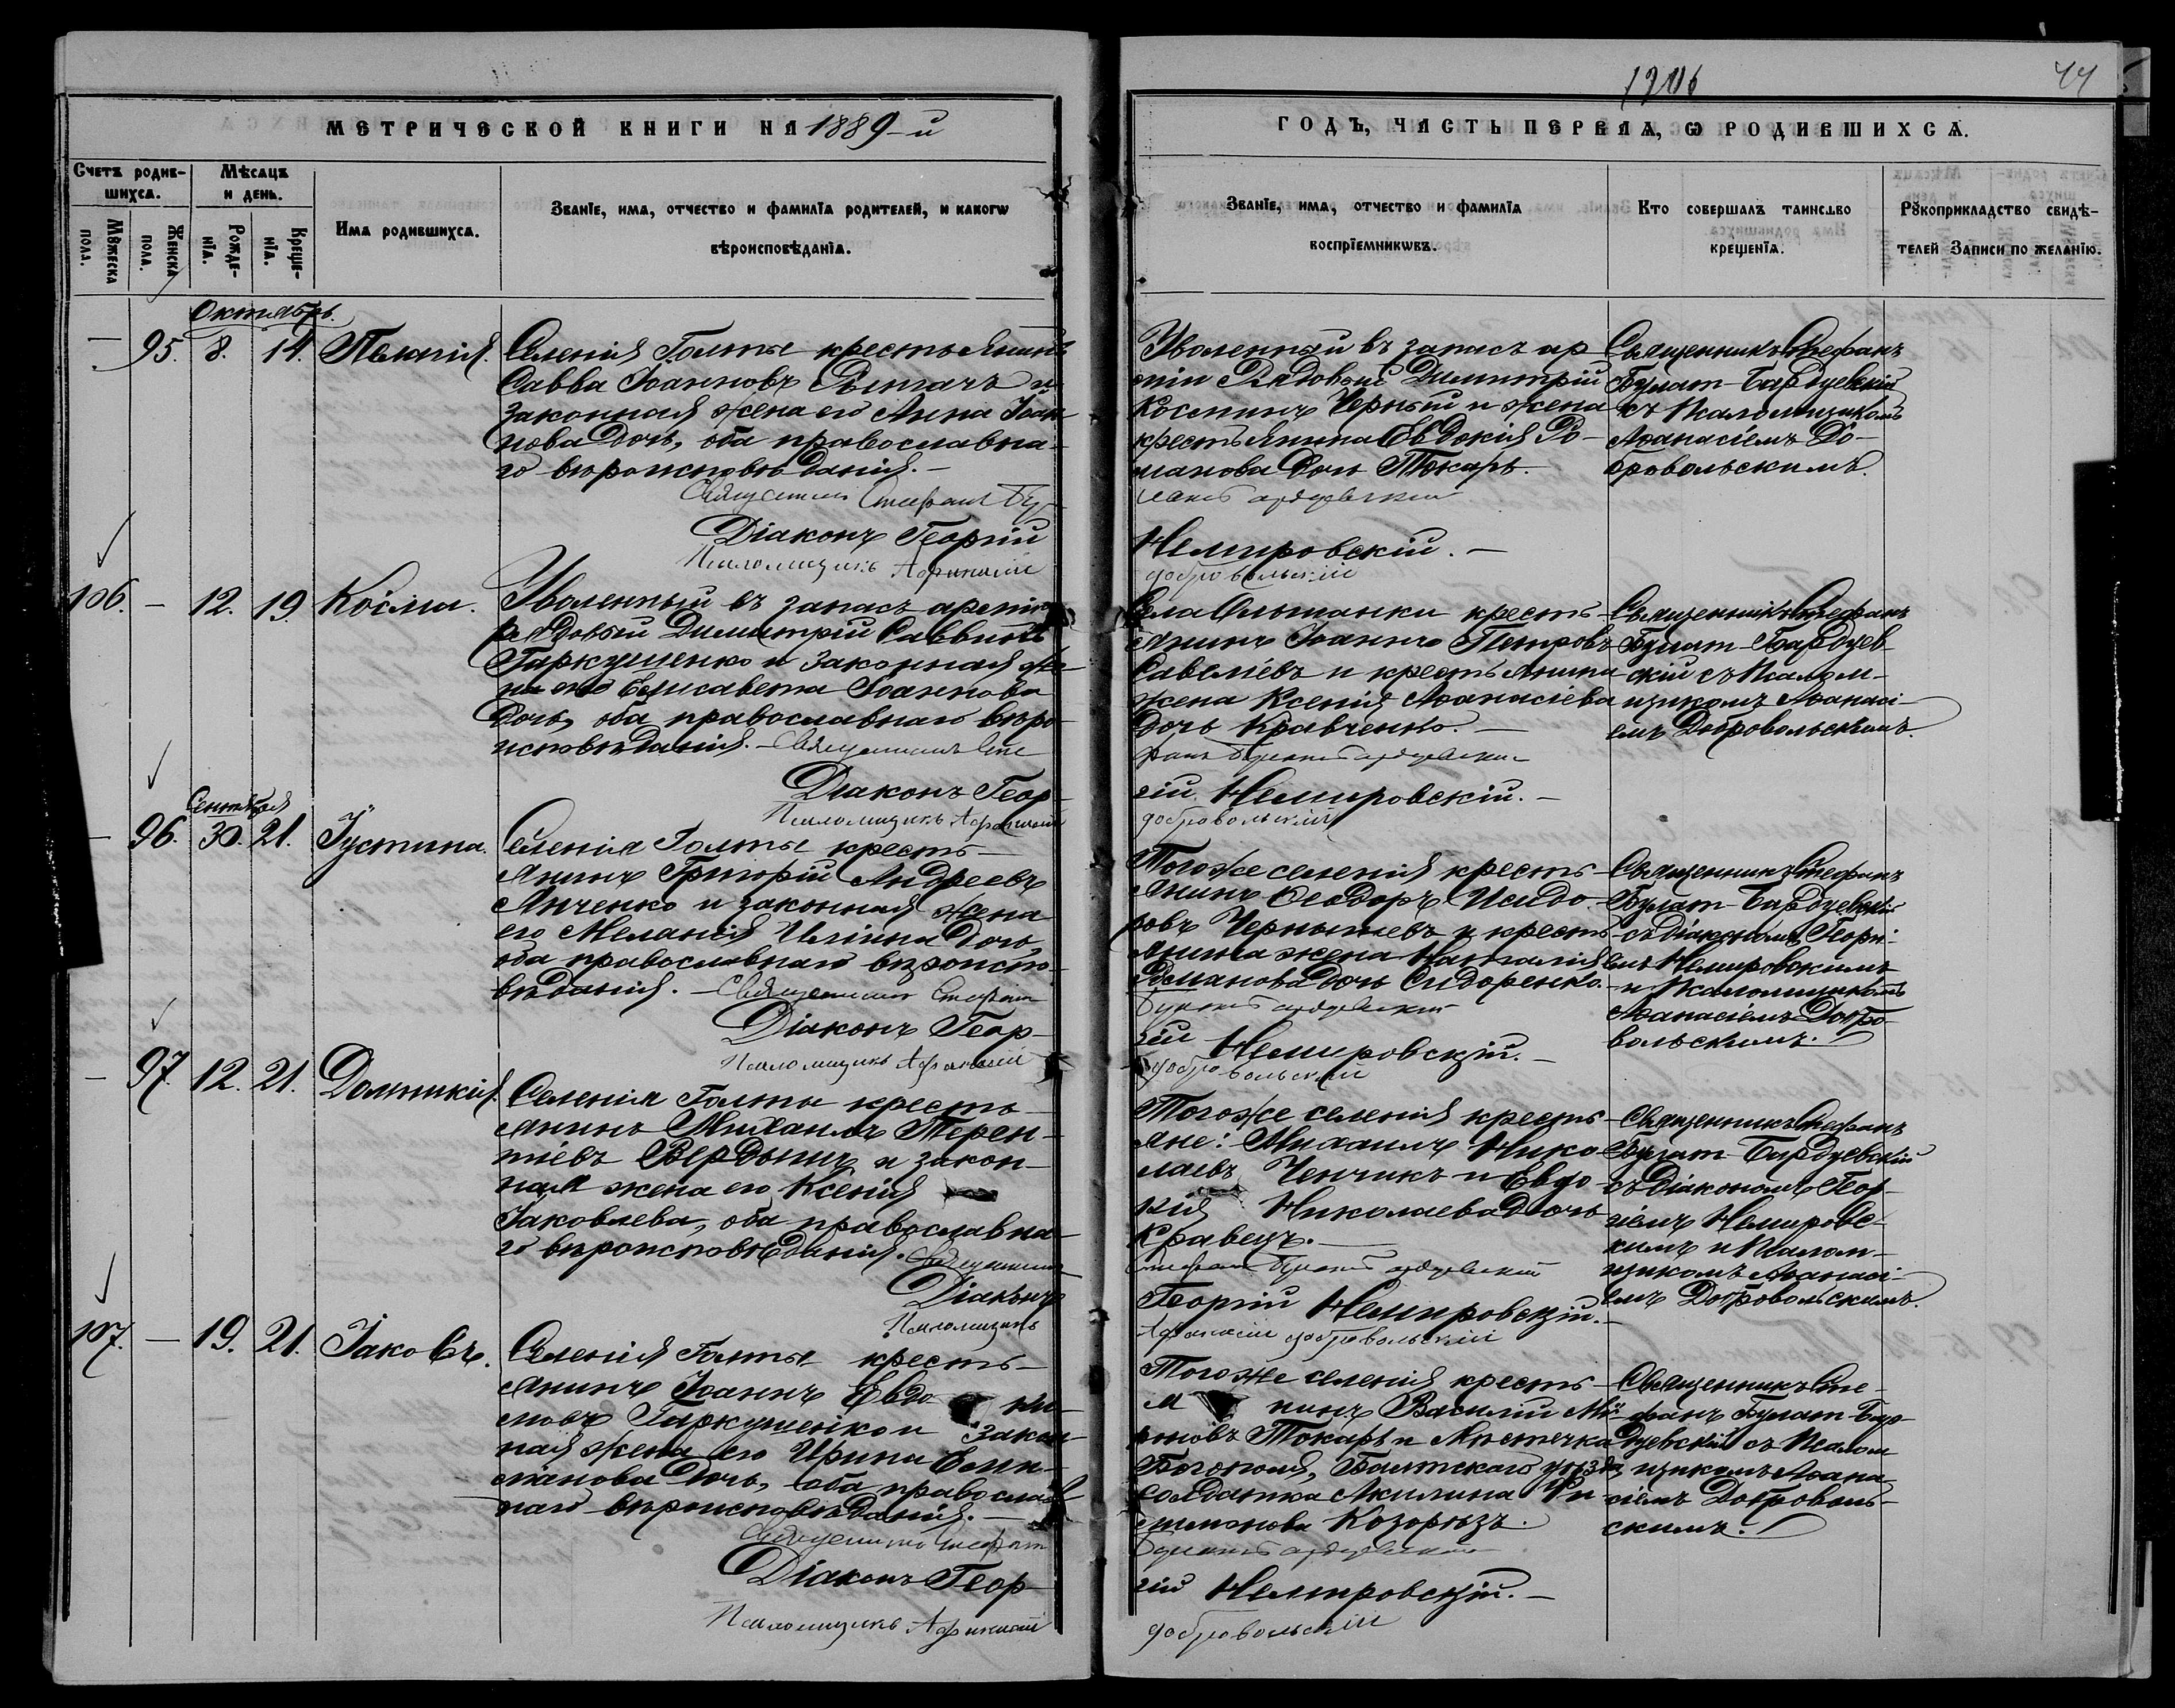 1206
44
МЕТРИЧЕСКОЙ КНИГИ НА 1889-й
ГОДЪ, ЧАСТЬ ПЕРВАЯ, Ѡ РОДИВШИХСЯ.
Счетъ родив-
шихся.
Мѣсяцъ
и день.
Мꙋжеска
пола.
Женска
пола.
Рожде-
нїя.
Креще-
нїя.
Имя родившихся.
Званїе, имя, отчество и фамилїя родителей, и какогѡ
вѣроисповѣданїя.
Званїе, имя, отчество и фамилїя
воспрїемникѡвъ.
Кто совершалъ таинство
крещенїя.
Рꙋкоприкладство свидѣ-
телей записи по желанїю.
Октябрь.
— 95. 8. 14. Пелагія.
Селенія Голты крестьянинъ
Савва Іоанновъ и
законная жена его Анна Іоан-
нова дочь, оба православна-
го вѣроисповѣданія.—
Священникъ Стефанъ Бу-
Діаконъ Георгій
Псаломщикъ Афанасій
Уволенный въ запасъ ар-
міи Рядовой Димитрій
Косминъ Черный и жена
крестьянина Евдокія Ро-
манова дочь Токарь.
латъ Бардуевскій
Немировскій.—
Добровольскій
Священникъ Стефанъ
Булат-Бардуевскій
съ Псаломщикомъ
Аѳанасіемъ До-
бровольскимъ.
106. — 12. 19. Косма.
Уволенный въ запасъ арміи
рядовый Димитрій Саввинъ
Гаркушенко и законная же-
на его Елисавета Іоаннова
дочь, оба православнаго вѣро-
исповѣданія.— Священникъ Сте
Діаконъ Геор-
Псаломщикъ Афанасій
Села Ольшанки кресть-
янинъ Іоаннъ Петровъ
Савеліевъ и крестьянина
жена Ксенія Аѳанасіева
дочь Кравченко.—
фанъ Булатъ Бардуевскій
гій Немировскій.—
Добровольскій
Священникъ Стефанъ
Булат-Бардуев-
скій съ Псалом-
щикомъ Аѳанасі-
емъ Добровольскимъ.
Сентября
— 96. 30. 21. Іустина.
Селенія Голты кресть-
янинъ Григорій Андреевъ
Янченко и законная жена
его Меланія Иліина дочь,
оба православнаго вѣроиспо-
вѣданія.— Священникъ Стефанъ
Діаконъ Геор-
Псаломщикъ Афанасій
Того же селенія кресть-
янинъ Ѳеодоръ Исидо-
ровъ Чернышевъ и кресть-
янина жена Наталія
Романова дочь Сидоренко.—
Булатъ Бардуевскій
гій Немировскій.—
Добровольскій
Священникъ Стефанъ
Булат-Бардуевскій
съ діакономъ Георгі-
емъ Немировскимъ
и Псаломщикомъ
Аѳанасіемъ Добро-
вольскимъ.
— 97. 12. 21. Домникія.
Селенія Голты кресть-
янинъ Михаилъ Терен-
тіевъ Вердышъ и закон-
ная жена его Ксенія
Іаковлева, оба православна-
го вѣроисповѣданія. Священникъ
Діаконъ
Псаломщикъ
Того же селенія кресть-
яне: Михаилъ Нико-
лаевъ Ченчикъ и Евдо-
кія Николаева дочь
Кравецъ.—
Стефанъ Булатъ Бардуевскій
Георгій Немировскій.—
Афанасій Добровольскій
Священникъ Стефанъ
Булат-Бардуевскій
съ Діакономъ Геор-
гіемъ Немировс-
кимъ и Псалом-
щикомъ Аѳанасі-
емъ Добровольскимъ.
107. — 19. 21. Іаковъ.
Селенія Голты кресть-
янинъ Іоаннъ Евдо ки-
мовъ Гаркушенко и закон-
ная жена его Ирина
дочь, оба православ-
наго вѣроисповѣданія.—
Священникъ Стефанъ
Діаконъ Геор-
Псаломщикъ Афанасій
Того же селенія кресть-
я нинъ Василій Ми-
роновъ Токарь и Мѣстечка
Богополя, Балтскаго уѣзда,
солдатка Акилина Фи-
Козорѣзъ.
Булатъ Бардуевскій
гій Немировскій.—
Добровольскій
Священникъ Сте-
фанъ Булат-Бар-
дуевскій съ Псалом-
щикомъ Аѳана-
сіемъ Доброволь-
скимъ.